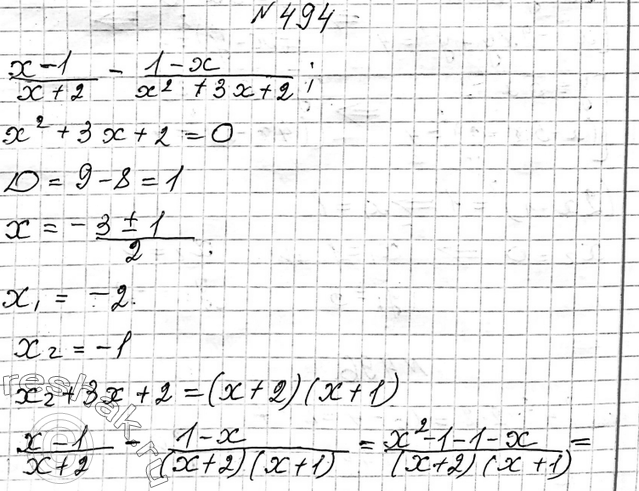 №494
(x-1)/(x+2) - (1-x)/(x² + 3x+2) ;
x² + 3x + 2 = 0
D = 9 - 8 = 1
x = (-3 ± 1)/2 .
x₁ = -2.
x₂ = -1
x₂ + 3x + 2 = (x+2)(x+1)
(x-1)/(x+2) - (1-x)/((x+2)(x+1)) = (x²-1-1-x)/((x+2)(x+1)) =
reshak.ru